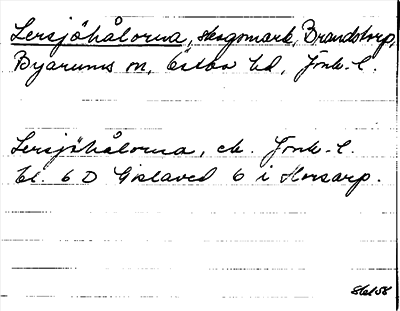 Lersjöhålorna, skogsmark, Brandstorp,
Byarums sn, Östbo hd, Jönk. l.
Lersjöhålorna, ek. Jönk. l.
bl. 6 D Gislaved 6 i Horsarp.